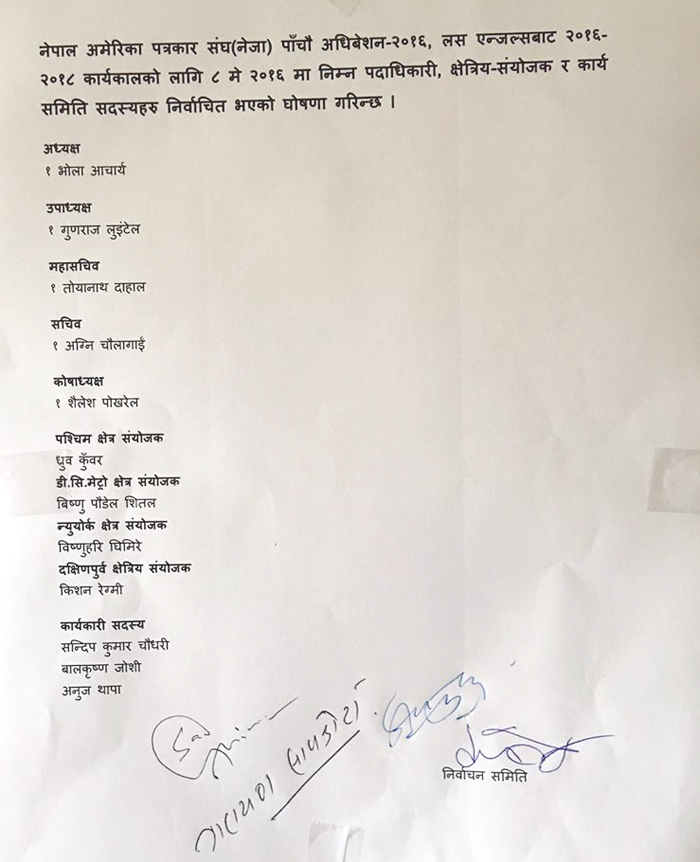 नेपाल अमेरिका पत्रकार संघ(नेजा) पाँचौ अधिबेशन-२०१६, लस एन्जल्सबाट २०१६-
२०१८ कार्यकालको लागि ८ मे २०१६ मा निम्न पदाधिकारी, क्षेत्रिय-संयोजक र कार्य
समिति सदस्यहरु निर्वाचित भएको घोषणा गरिन्छ ।
अध्यक्ष
१ भोला आचार्य
उपाध्यक्ष
१ गुणराज लुइंटेल
महासचिव
१ तोयानाथ दाहाल
सचिव
१ अग्नि चौलागाईं
कोषाध्यक्ष
१ शैलेश पोखरेल
पश्चिम क्षेत्र संयोजक
ध्रुव कुँवर
डी.सि.मेट्रो क्षेत्र संयोजक
बिष्णु पौडेल शितल
न्युयोर्क क्षेत्र संयोजक
विष्णुहरि घिमिरे
दक्षिणपुर्व क्षेत्रिय संयोजक
किशन रेग्मी
कार्यकारी सदस्य
सन्दिप कुमार चौधरी
बालकृष्ण जोशी
अनुज थापा
नारायण सापकोटा
निर्वाचन समिति